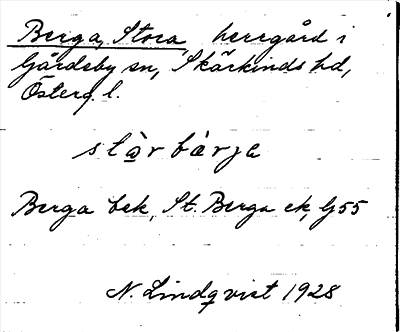 Berga, Stora, herregård i
Gårdeby sn, Skärkinds hd,
Österg. l.
stọ̀r bàrja
Berga bek, St. Berga ek, G 55
N. Lindqvist 1928